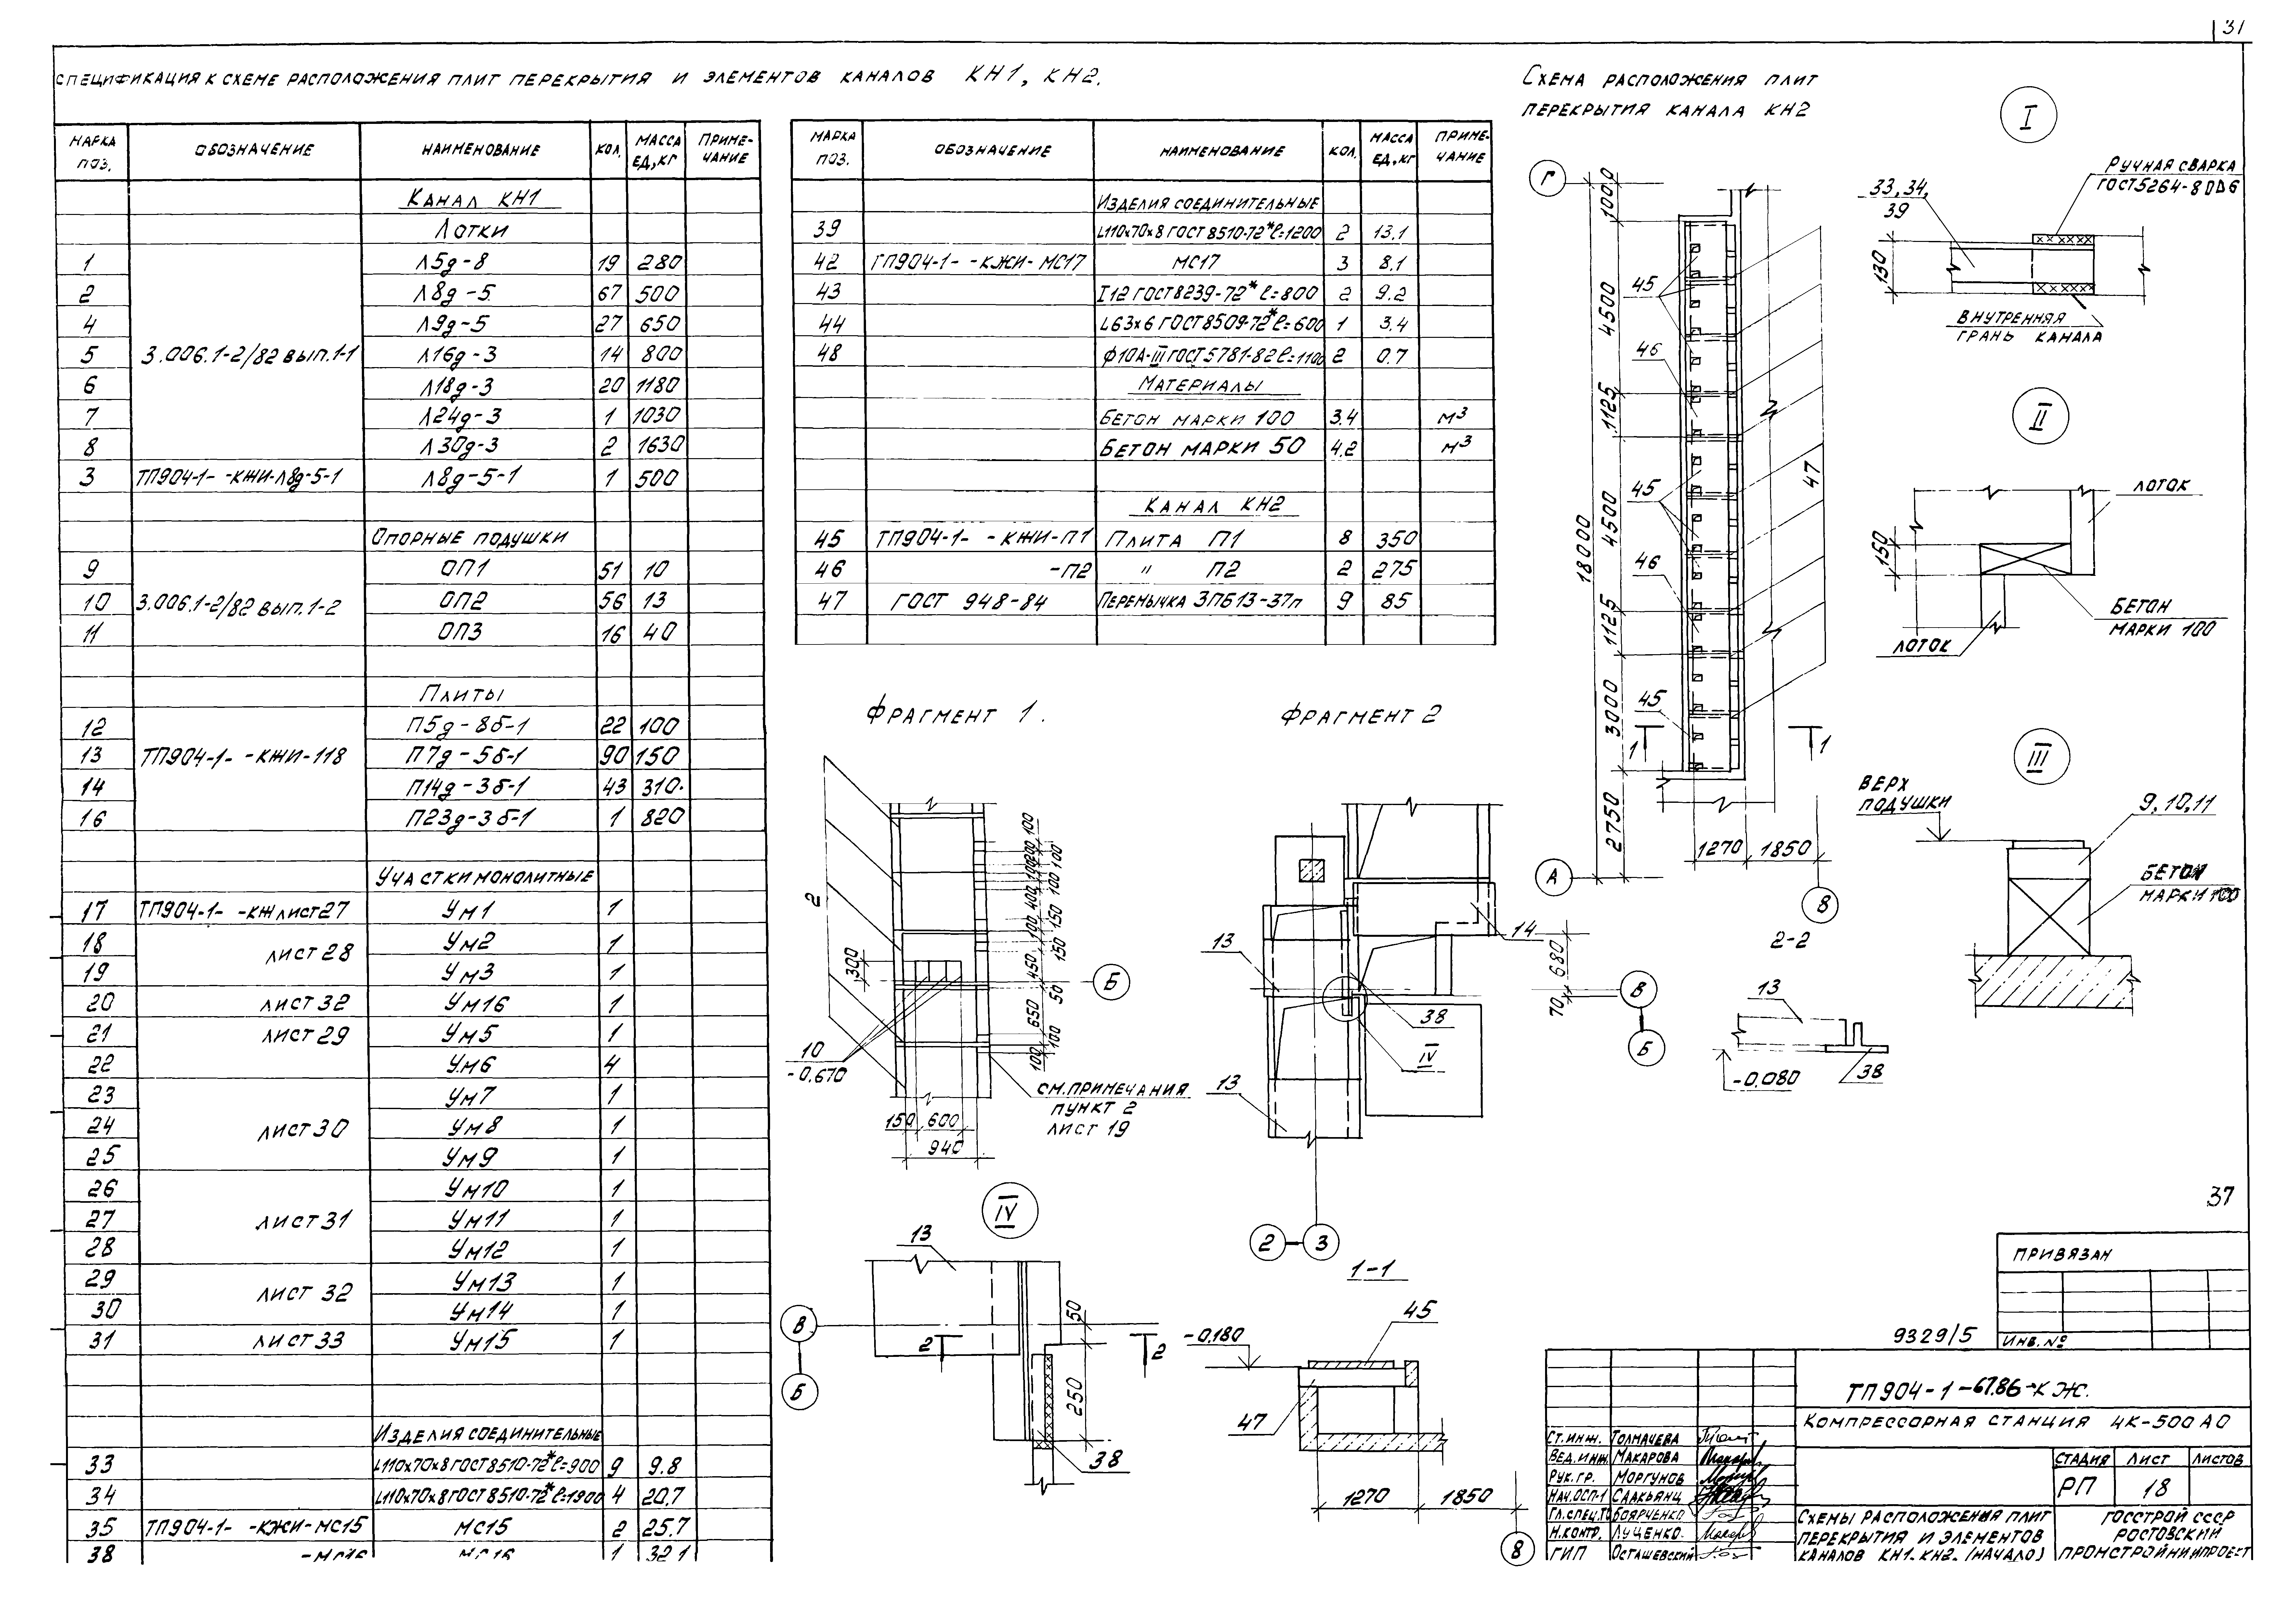 31
СПЕЦИФИКАЦИЯ К СХЕМЕ РАСПОЛОЖЕНИЯ ПЛИТ ПЕРЕКРЫТИЯ И ЭЛЕМЕНТОВ КАНАЛОВ КН1, КН2.
МАРКА ПОЗ. ОБОЗНАЧЕНИЕ НАИМЕНОВАНИЕ КОЛ. МАССА ЕД,КГ ПРИМЕ-ЧАНИЕ
КАНАЛ КН1
ЛОТКИ
1 Л5д-8 19 280
2 Л8д-5 67 500
4 Л9д-5 27 650
5 3.006.1-2/82 ВЫП.1-1 Л16д-3 14 800
6 Л18д-3 20 1180
7 Л24д-3 1 1030
8 Л30д-3 2 1630
3 ТП904-1- -КЖИ-Л8д-5-1 Л8д-5-1 1 500
ОПОРНЫЕ ПОДУШКИ
9 ОП1 51 10
10 3.006.1-2/82 ВЫП.1-2 ОП2 56 13
11 ОП3 16 40
ПЛИТЫ
12 П5д-8б-1 22 100
13 ТП904-1- -КЖИ-118 П7д-5б-1 90 150
14 П14д-3б-1 43 310.
16 П23д-3б-1 1 820
УЧАСТКИ МОНОЛИТНЫЕ
17 ТП904-1- -КЖ ЛИСТ 27 УМ1 1
18 ЛИСТ 28 УМ2 1
19 УМ3 1
20 ЛИСТ 32 УМ16 1
21 ЛИСТ 29 УМ5 1
22 УМ6 4
23 УМ7 1
24 ЛИСТ 30 УМ8 1
25 УМ9 1
26 УМ10 1
27 ЛИСТ 31 УМ11 1
28 УМ12 1
29 ЛИСТ 32 УМ13 1
30 УМ14 1
31 ЛИСТ 33 УМ15 1
ИЗДЕЛИЯ СОЕДИНИТЕЛЬНЫЕ
33 L110х70х8 ГОСТ 8510-72* ℓ=900 9 9.8
34 L110х70х8 ГОСТ 8510-72* ℓ=1900 4 20.7
35 ТП904-1- -КЖИ-МС15 МС15 2 25.7
38 -МС16 МС16 1 32.1
МАРКА ПОЗ. ОБОЗНАЧЕНИЕ НАИМЕНОВАНИЕ КОЛ. МАССА ЕД,КГ ПРИМЕ-ЧАНИЕ
ИЗДЕЛИЯ СОЕДИНИТЕЛЬНЫЕ
39 L110х70х8 ГОСТ 8510-72* ℓ=1200 2 13.1
42 ТП904-1- -КЖИ-МС17 МС17 3 8.1
43 I12 ГОСТ 8239-72* ℓ=800 2 9.2
44 L63х6 ГОСТ 8509-72* ℓ=600 1 3.4
48 ф10А-III ГОСТ 5781-82 ℓ=1100 2 0.7
МАТЕРИАЛЫ
БЕТОН МАРКИ 100 3.4 М³
БЕТОН МАРКИ 50 4.2 М³
КАНАЛ КН2
45 ТП904-1- -КЖИ-П1 ПЛИТА П1 8 350
46 -П2 " П2 2 275
47 ГОСТ 948-84 ПЕРЕМЫЧКА 3ПБ13-37п 9 85
СХЕМА РАСПОЛОЖЕНИЯ ПЛИТ
ПЕРЕКРЫТИЯ КАНАЛА КН2
Г
1000
4500
1125
4500
1125
3000
2750
18000
45
46
45
46
45
47
1 1
1270 1850
А
8
I
РУЧНАЯ СВАРКА
ГОСТ5264-80 Δ6
33,34,
39
130
ВНУТРЕННЯЯ
ГРАНЬ КАНАЛА
II
ЛОТОК
150
БЕТОН
МАРКИ 100
ЛОТОК
III
ВЕРХ
ПОДУШКИ
9,10,11
БЕТОН
МАРКИ 100
ФРАГМЕНТ 1.
2
300
10
-0.670
150 600
940
100
200
100
190
100
400
150
100
150
450
50
650
100
100
Б
СМ.ПРИМЕЧАНИЯ
ПУНКТ 2
ЛИСТ 19
ФРАГМЕНТ 2
13
14
680
70
38
IV
13
В
Б
2 3
2-2
13
-0.080
38
IV
13
В
Б
50
250
2 2
38
1-1
45
-0.180
47
1270 1850
8
37
ПРИВЯЗАН
ИНВ.№
9329/5
ТП904-1-67.86-КЖ.
КОМПРЕССОРНАЯ СТАНЦИЯ 4К-500АО
СТ.ИНЖ. ТОЛМАЧЕВА
ВЕД.ИНЖ МАКАРОВА
РУК.ГР. МОРГУНОВ
НАЧ.ОСП-1 СААКЬЯНЦ
ГЛ.СПЕЦ.ТО БОЯРЧЕНКО
Н.КОНТР. ЛУЦЕНКО.
ГИП ОСТАШЕВСКИЙ
СТАДИЯ ЛИСТ ЛИСТОВ
РП 18
СХЕМЫ РАСПОЛОЖЕНИЯ ПЛИТ
ПЕРЕКРЫТИЯ И ЭЛЕМЕНТОВ
КАНАЛОВ КН1, КН2. (НАЧАЛО)
ГОССТРОЙ СССР
РОСТОВСКИЙ
ПРОМСТРОЙНИИПРОЕКТ